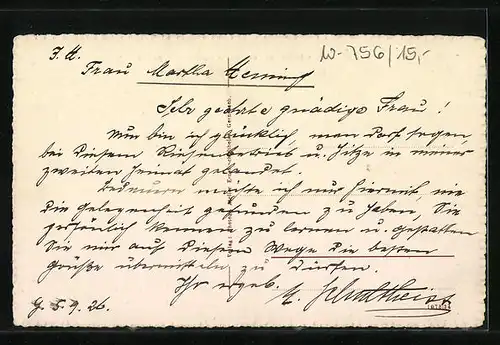 J. H.
W-756/15,-
Frau Martha Hennig
Sehr geehrte gnädige Frau!
Nun bin ich glücklich, man darf sagen,
bei diesem Riesenbetrieb u. Hitze in meiner
zweiten Heimat gelandet.
Bedauern möchte ich nur hiermit, nie
die Gelegenheit gefunden zu haben, Sie
persönlich kennen zu lernen u. gestatten
Sie mir auf diesem Wege die besten
Grüße übermitteln zu dürfen.
Ihr ergeb.
G. 5.9.26. H. Schultheiss